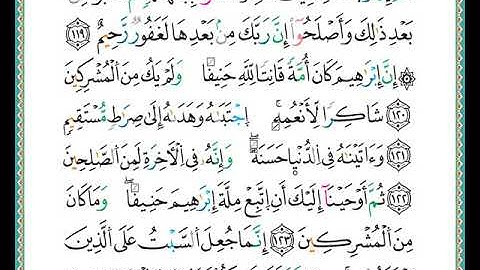 بَعْدِ ذَٰلِكَ وَأَصْلَحُوٓا۟ إِنَّ رَبَّكَ مِنۢ بَعْدِهَا لَغَفُورٌ رَّحِيمٌ ١١٩
۞ إِنَّ إِبْرَٰهِيمَ كَانَ أُمَّةً قَانِتًا لِّلَّهِ حَنِيفًا وَلَمْ يَكُ مِنَ ٱلْمُشْرِكِينَ
١٢٠ شَاكِرًا لِّأَنْعُمِهِۚ ٱجْتَبَىٰهُ وَهَدَىٰهُ إِلَىٰ صِرَٰطٍ مُّسْتَقِيمٍ
١٢١ وَءَاتَيْنَٰهُ فِى ٱلدُّنْيَا حَسَنَةً ۖ وَإِنَّهُۥ فِى ٱلْـَٔاخِرَةِ لَمِنَ ٱلصَّٰلِحِينَ
١٢٢ ثُمَّ أَوْحَيْنَآ إِلَيْكَ أَنِ ٱتَّبِعْ مِلَّةَ إِبْرَٰهِيمَ حَنِيفًا ۖ وَمَا كَانَ
مِنَ ٱلْمُشْرِكِينَ ١٢٣ إِنَّمَا جُعِلَ ٱلسَّبْتُ عَلَى ٱلَّذِينَ